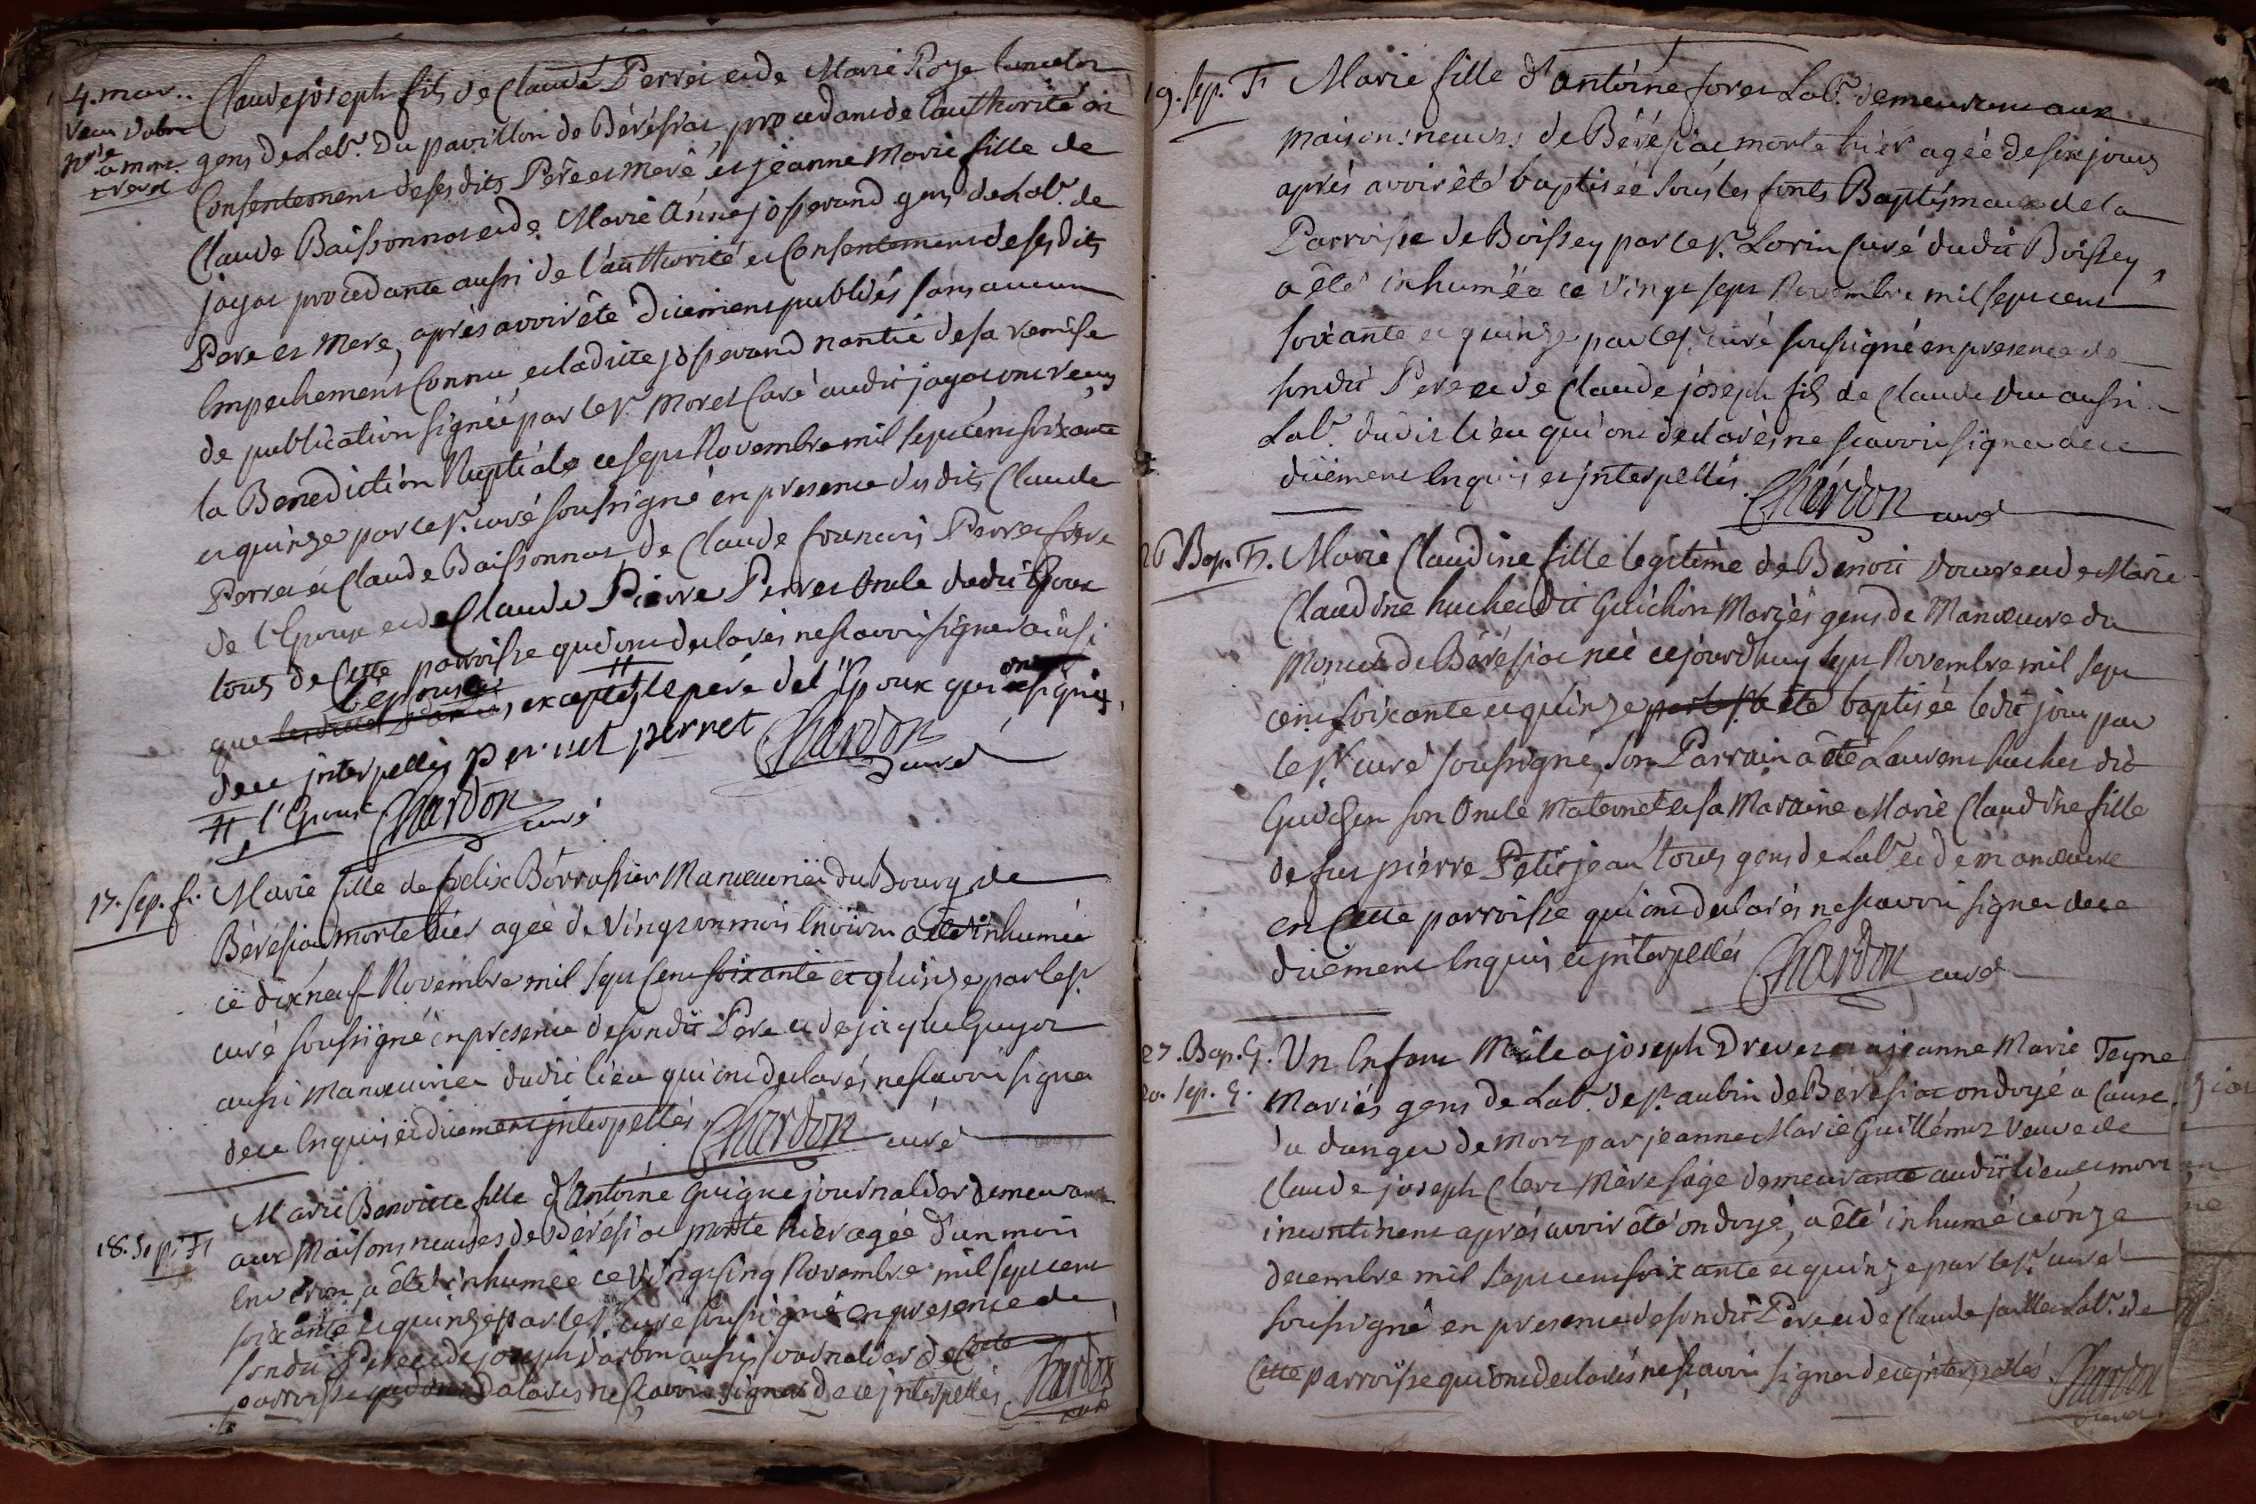 4. mar..
Claude joseph fils de Claude Perret et de Marie Roze
gens de Labr. Du pavillon de Béréziat, procedant de l'authorité et
Consentement desesdits Pere et Mere et jeanne Marie fille de
Claude Baissonnat et de Marie Anne josserand gens de Labr. de
jayat procedante aussi de l'authorité et Consentement desesdits
Pere et Mere, après avoir été düement publiés sans aucun
Empechement Connu, et ladicte josserand nantie desa remise
de publication signée par le sr. Moret Curé audit jayat ont reçus
la Benediction Nuptiale ce sept Novembre mil sept cent soixante
et quinze par le sr. curé soussigné en presence desdits Claude
Perret et Claude Baissonnat de Claude francois Perret frere
de l'Epoux et de Claude Pierre Perret Oncle dudit Epoux
tous de Cette parroisse qui ont declarés ne scavoir signer ainsi
que l'epouse, exceptés le pere del' Epoux qui ont signés,
dece interpellés perret perret Chardon curé
# l'Epoux Chardon curé
17. Sep. f. Marie fille de felix Borrassier Manoeuvrier du Bourg de
Béréziat morte hier agée de Vingt un mois Environ a été inhumée
ce dix neuf Novembre mil sept Cent soixante et quinze par le sr.
curé soussigné en presence desondit Pere et de jaque Guyot
aussi Manoeuvrier dudit lieu qui ont declarés ne scavoir signer
dece Enquis et düement interpellés Chardon curé
18. Sep. F. Marie Benoitte fille d'Antoine Guigue journalier demeurant
aux Maisons neuves de Béréziat morte hier agée d'un mois
Environ, a été inhumée ce Vingt sinq Novembre mil sept cent
soixante et quinze par le sr curé soussigné en presence de
sondit Pere et de joseph darbon aussi journalier de Cette
parroisse qui ont declarés ne scavoir signer dece interpellés Chardon
curé
19. Sep. F. Marie fille d'antoine foret Labr. demeurant aux
maisons neuves de Béréziat morte hier agée de six jours
après avoir été baptisée sous les fonts Baptismaux de la
Parroisse de Boissey par le sr. Lorin Curé dudit Boissey,
a été inhumée ce Vingt sept Novembre mil sept cent
soixante et quinze par le sr. curé soussigné en presence de
sondit Pere et de Claude joseph fils de Claude Duc aussi
Labr. dudit lieu qui ont declarés ne scavoir signer dece
düement Enquis et interpellés. Chardon curé
26 Bap. F. Marie Claudine fille legitime de Benoit Vouvre et de Marie
Claudine huchet dit Guichon Mariés gens de Manoeuvre du
Moncet de Béréziat née cejourdhuy sept Novembre mil sept
cent soixante et quinze par le sr. a été baptisée ledit jour par
le sr curé soussigné, son Parrain a été Laurent huchet dit
Guichon son Oncle Maternel et sa Maraine Marie Claudine fille
de feu pierre Petitjean tous gens de Labr et de manoeuvre
en Cette parroisse qui ont declarés ne scavoir signer dece
düement Enquis et interpellés Chardon curé
27. Bap. G. Un Enfant Mâle a joseph Drevet et a jeanne Marie Teyne
20. Sep. G. Mariés gens de Labr. de st. aubin de Béréziat ondoyé a Cause
du danger de mort par jeanne Marie Guillemot Veuve de
Claude joseph Clerc Mère sage demeurante audit lieu, et mort
incontinent après avoir été ondoyé, a été inhumé ce onze
decembre mil sept cent soixante et quinze par le sr. curé
soussigné en presence desondit Pere et de Claude Labr. de
Cette parroisse qui ont declarés ne scavoir signer dece interpellés Chardon
curé